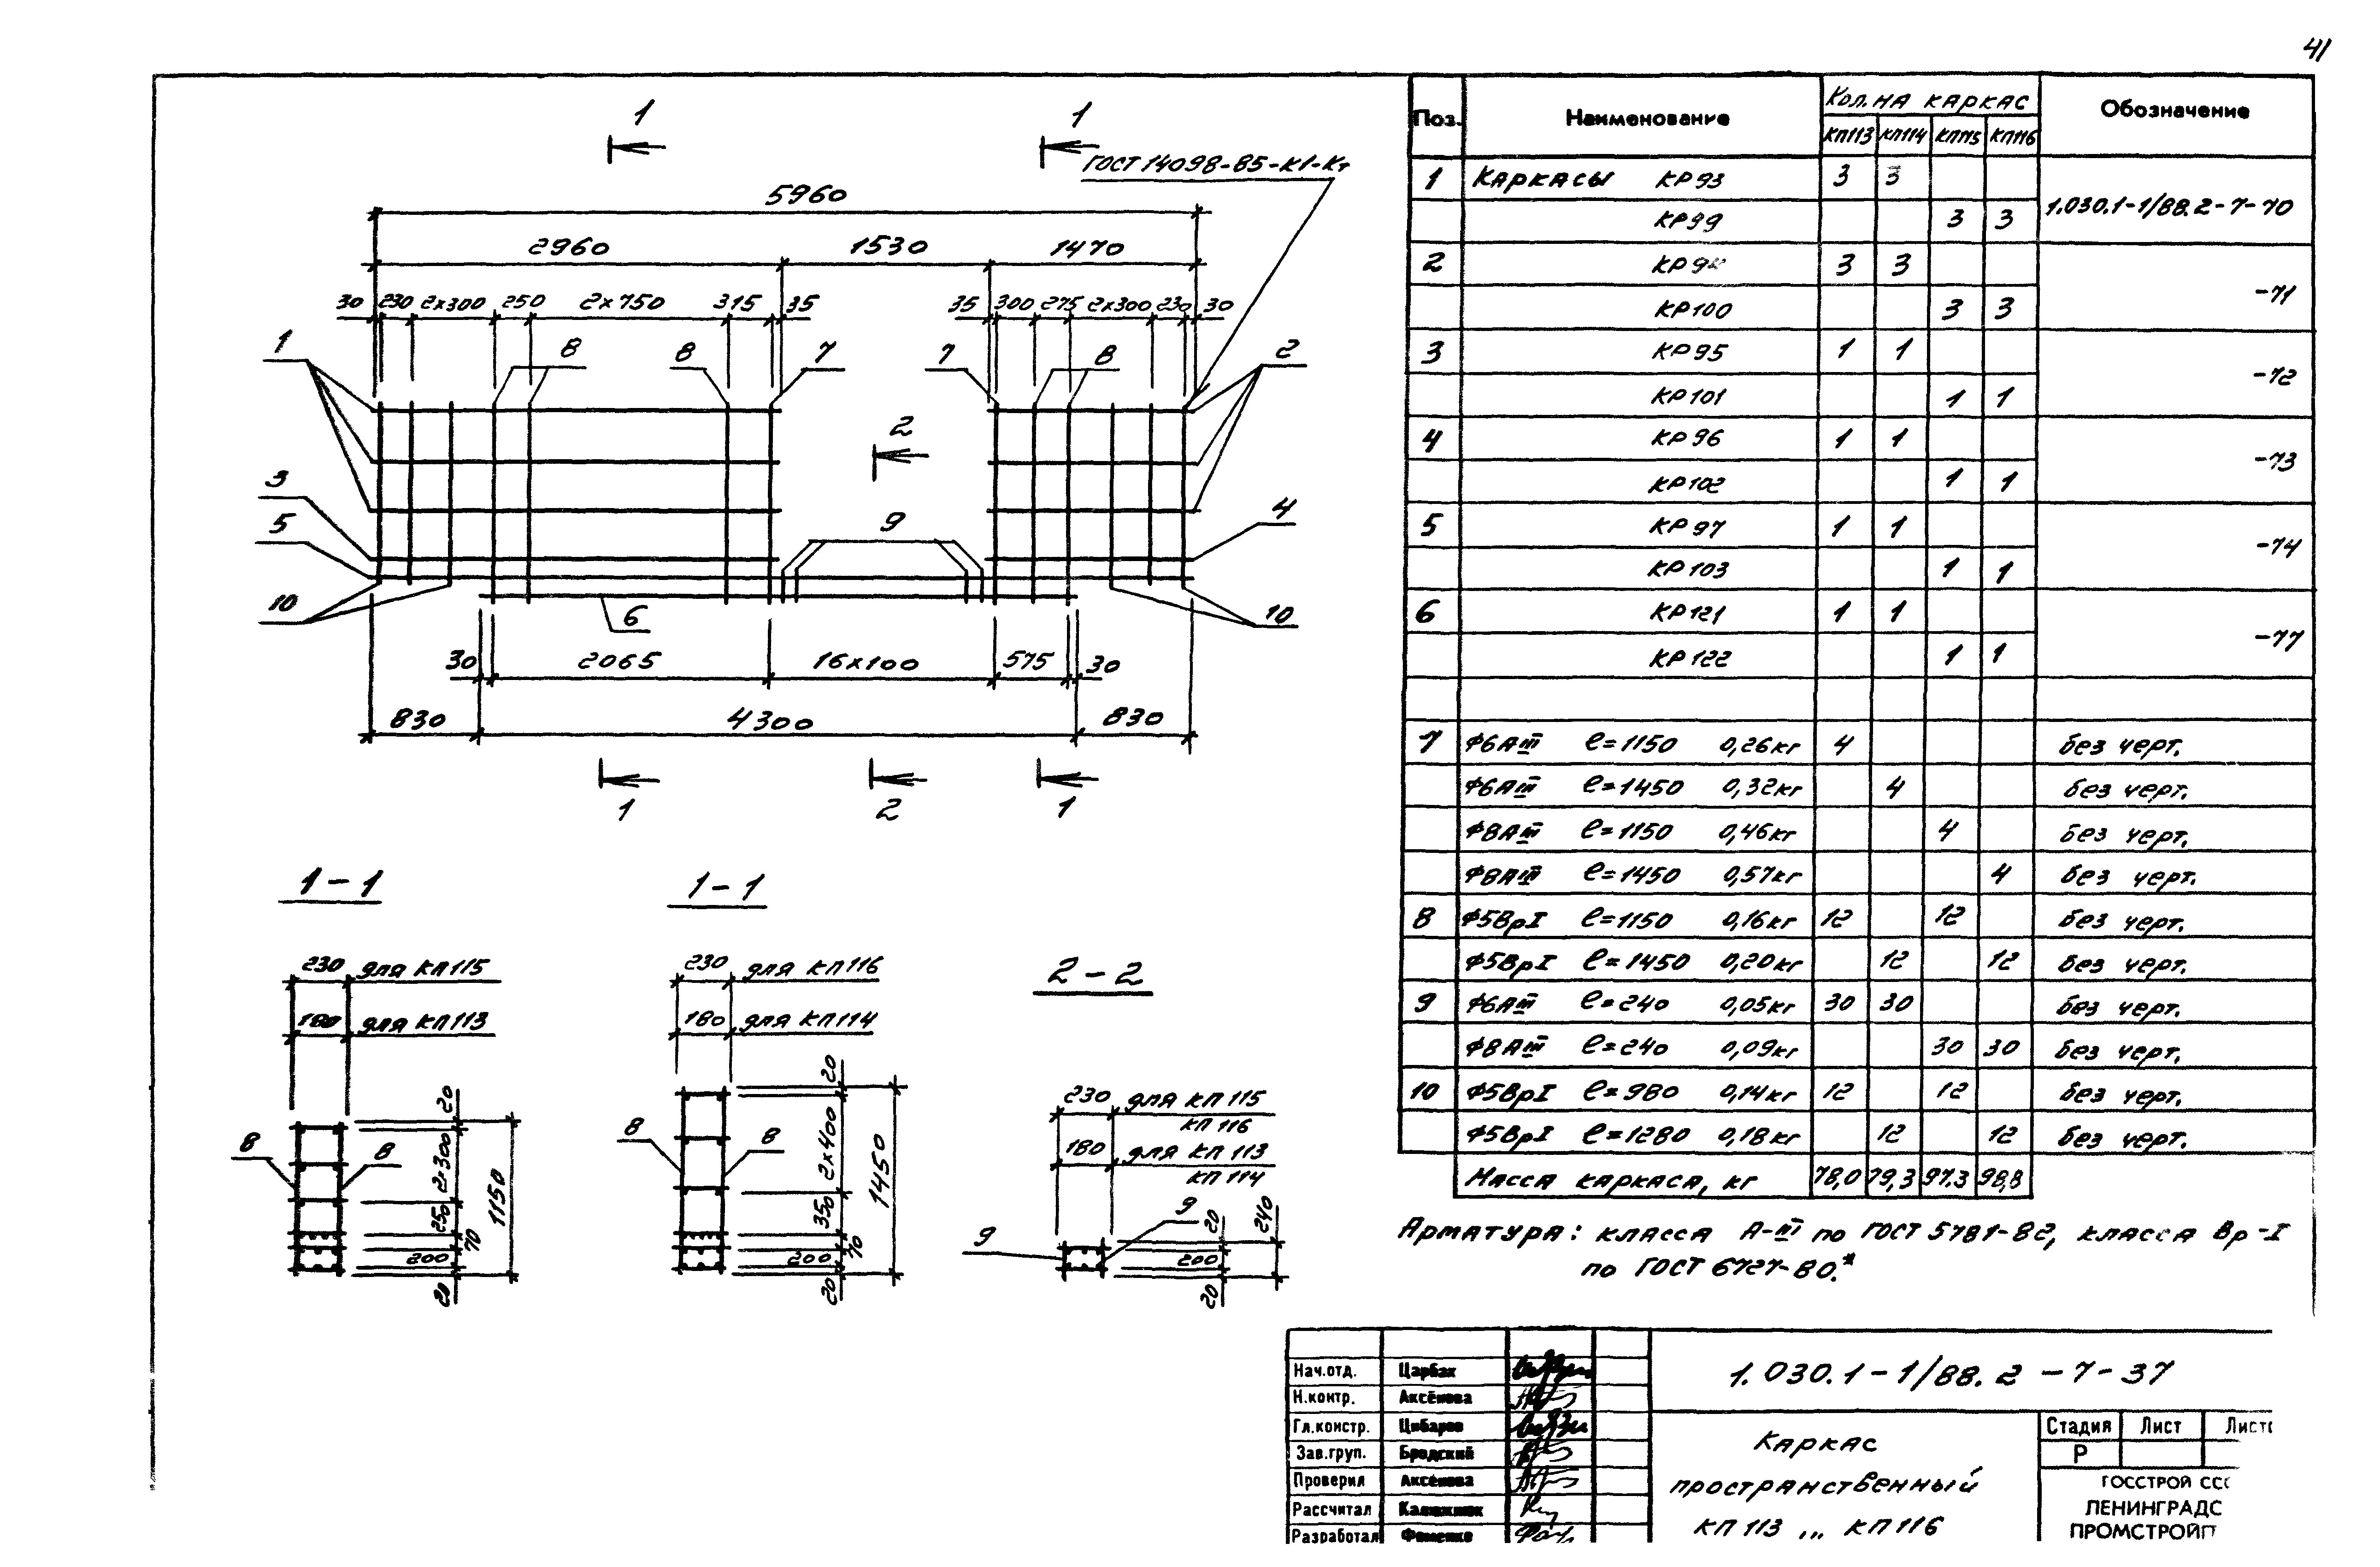 41
1 1
ГОСТ 14098-85-К1-Кт
5960
2960 1530 1470
30 230 2х300 250 2х750 315 35 35 300 275 2х300 230 30
1 8 8 7 7 8 2
2
3 9 4
5
10 6 10
30 2065 16х100 575 30
830 4300 830
1 2 1
1-1
230 для КП115
180 для КП113
8 8
20
2х300
250
70
200
20
1150
1-1
230 для КП116
180 для КП114
8 8
20
2х400
350
70
200
20
1450
2-2
230 для КП 115
КП 116
180 для КП 113
КП 114
9 9
20
200
20
240
Поз. Наименование Кол. на каркас Обозначение
КП113 КП114 КП115 КП116
1 Каркасы КР93 3 3 1.030.1-1/88.2-7-70
КР99 3 3
2 КР94 3 3 -71
КР100 3 3
3 КР95 1 1 -72
КР101 1 1
4 КР96 1 1 -73
КР102 1 1
5 КР97 1 1 -74
КР103 1 1
6 КР121 1 1 -77
КР122 1 1
7 Ф6АIII ℓ=1150 0,26кг 4 без черт.
Ф6АIII ℓ=1450 0,32кг 4 без черт.
Ф8АIII ℓ=1150 0,46кг 4 без черт.
Ф8АIII ℓ=1450 0,57кг 4 без черт.
8 Ф5ВрI ℓ=1150 0,16кг 12 12 без черт.
Ф5ВрI ℓ=1450 0,20кг 12 12 без черт.
9 Ф6АIII ℓ=240 0,05кг 30 30 без черт.
Ф8АIII ℓ=240 0,09кг 30 30 без черт.
10 Ф5ВрI ℓ=980 0,14кг 12 12 без черт.
Ф5ВрI ℓ=1280 0,18кг 12 12 без черт.
Масса каркаса, кг 78,0 79,3 97.3 98,8
Арматура: класса А-III по ГОСТ 5781-82, класса Вр-I
по ГОСТ 6727-80.*
Нач.отд. Царбак
Н.контр. Аксёнова
Гл.констр. Цибаров
Зав.груп. Бродский
Проверил Аксёнова
Рассчитал
Разработал Фоменко
1.030.1-1/88.2-7-37
Каркас
пространственный
КП 113 ,,, КП 116
Стадия Лист Листо
Р
ГОССТРОЙ ССС
ЛЕНИНГРАДС
ПРОМСТРОЙП